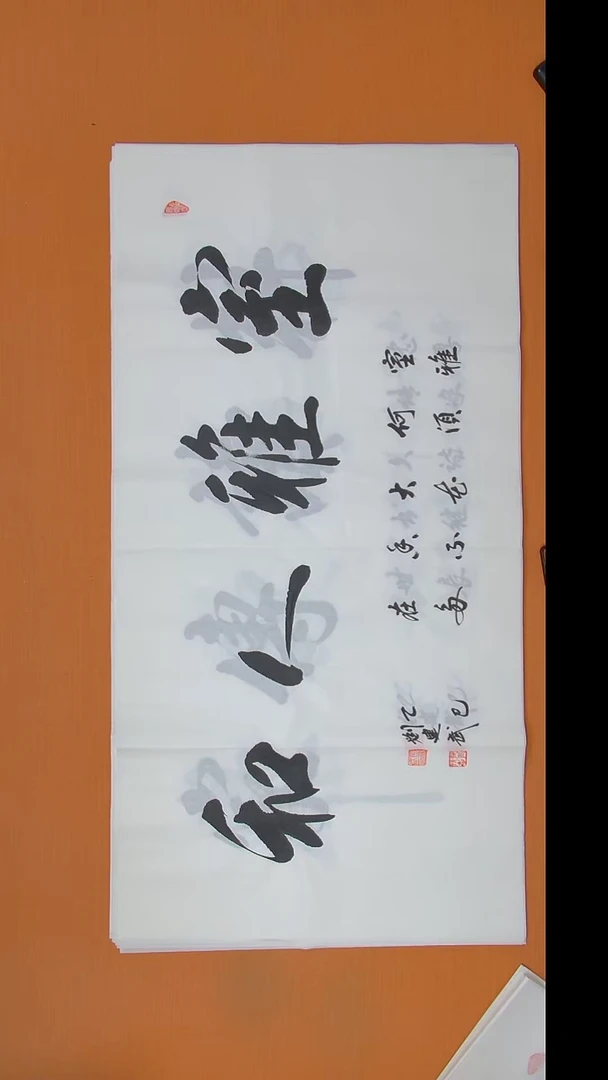 室雅人和
室雅
何須
大花
香不
在多
乙巳
劉建武